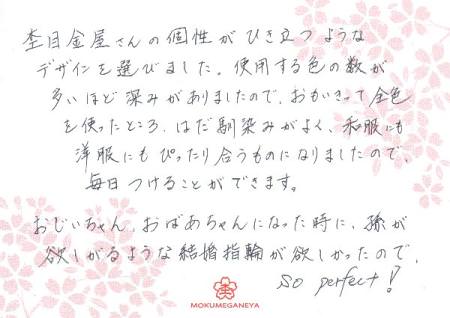 杢目金屋さんの個性がひき立つような
デザインを選びました。使用する色の数が
多いほど深みがありましたので、おもいきって全色
を使ったところ、はだ馴染みがよく、和服にも
洋服にもぴったり合うものになりましたので、
毎日つけることができます。
おじいちゃん、おばあちゃんになった時に、孫が
欲しがるような結婚指輪が欲しかったので、
so perfect!
MOKUMEGANEYA